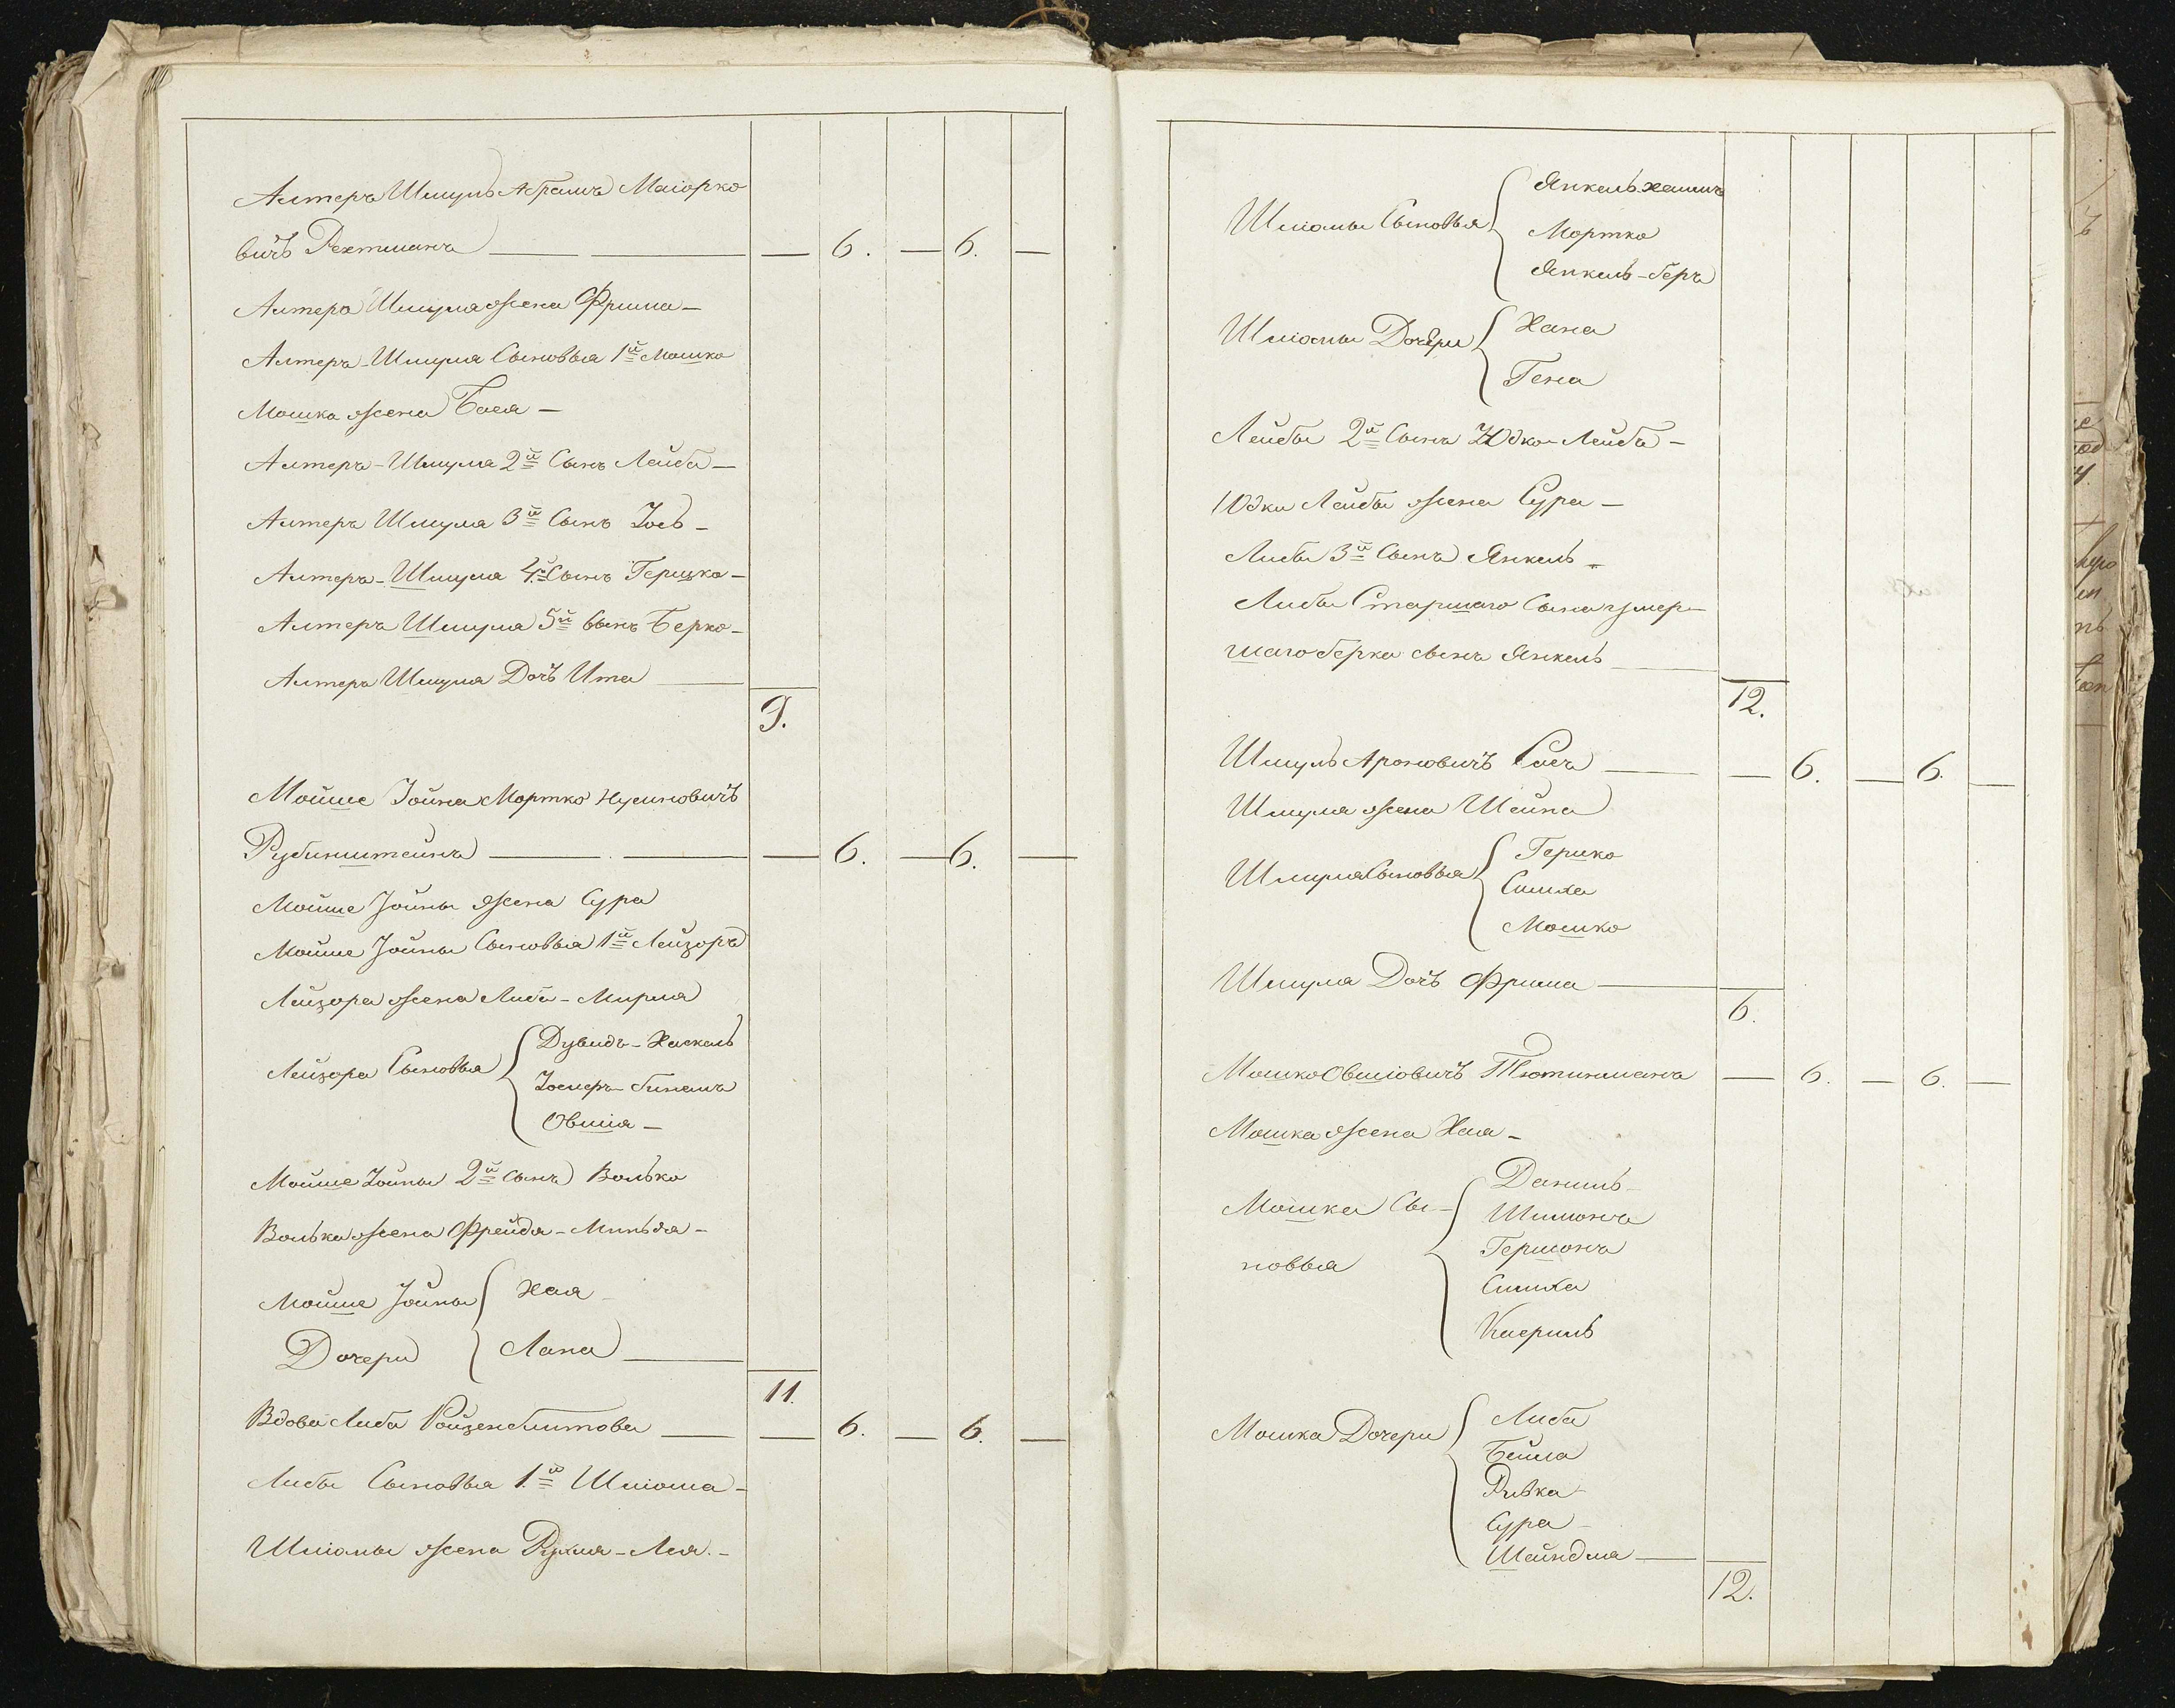 Алтеръ Шмуль Абрамъ Маіорко
вичъ Рехтманъ — — — 6. — 6. —
Алтера Шмуля жена Фрима —
Алтеръ-Шмуля Сыновья 1й Мошко
Мошка жена Бася —
Алтеръ-Шмуля 2й Сынъ Лейба —
Алтеръ Шмуля 3й Сынъ Іось —
Алтеръ-Шмуля 4й Сынъ Гершко —
Алтеръ Шмуля 5й Сынъ Берко —
Алтеръ Шмуля Дочь Ита —
9.
Мойше Іойна Мортко Нусиновичъ
Рубинштейнъ — — — 6. — 6. —
Мойше Іойны жена Сура
Мойше Іойны Сыновья 1й Лейзоръ
Лейзора жена Либа-Мирля
Лейзора Сыновья
Дувидъ-Хаскель
Іосперъ-бинемъ
Овшія —
Мойше Іойны 2й Сынъ Волько
Волька жена Фрейда-Миндля —
Мойше Іойны
Дочери
Хая
Лана —
11.
Вдова Либа Ройзенблитова — — 6. — 6. —
Либы Сыновья 1й Шліома —
Шліомы жена Рухля-Лея. —
Шліомы Сыновья
Янкель хаимъ
Мортко
Янкель-беръ
Шліомы Дочери
Хана
Гена
Лейбы 2й Сынъ Юдко-Лейба —
Юдки Лейбы жена Сура —
Либы 3й Сынъ Янкель —
Либы Старшаго Сына умер-
шаго берка сынъ Янкель —
12.
Шмуль Ароновичъ — — 6. — 6. —
Шмуля жена Шейна
Шмуля Сыновья
Гершко
Симха
Мошко
Шмуля Дочь Фрима —
6.
Мошко Овшіовичъ Тютинманъ — 6. — 6. —
Мошка жена Хая —
Мошка Сы-
новья
Даниль
Шимонъ
Гершонъ
Симха
Касриль
Мошка Дочери
Либа
Бейла
Ривка
Сура
Шейндля —
12.